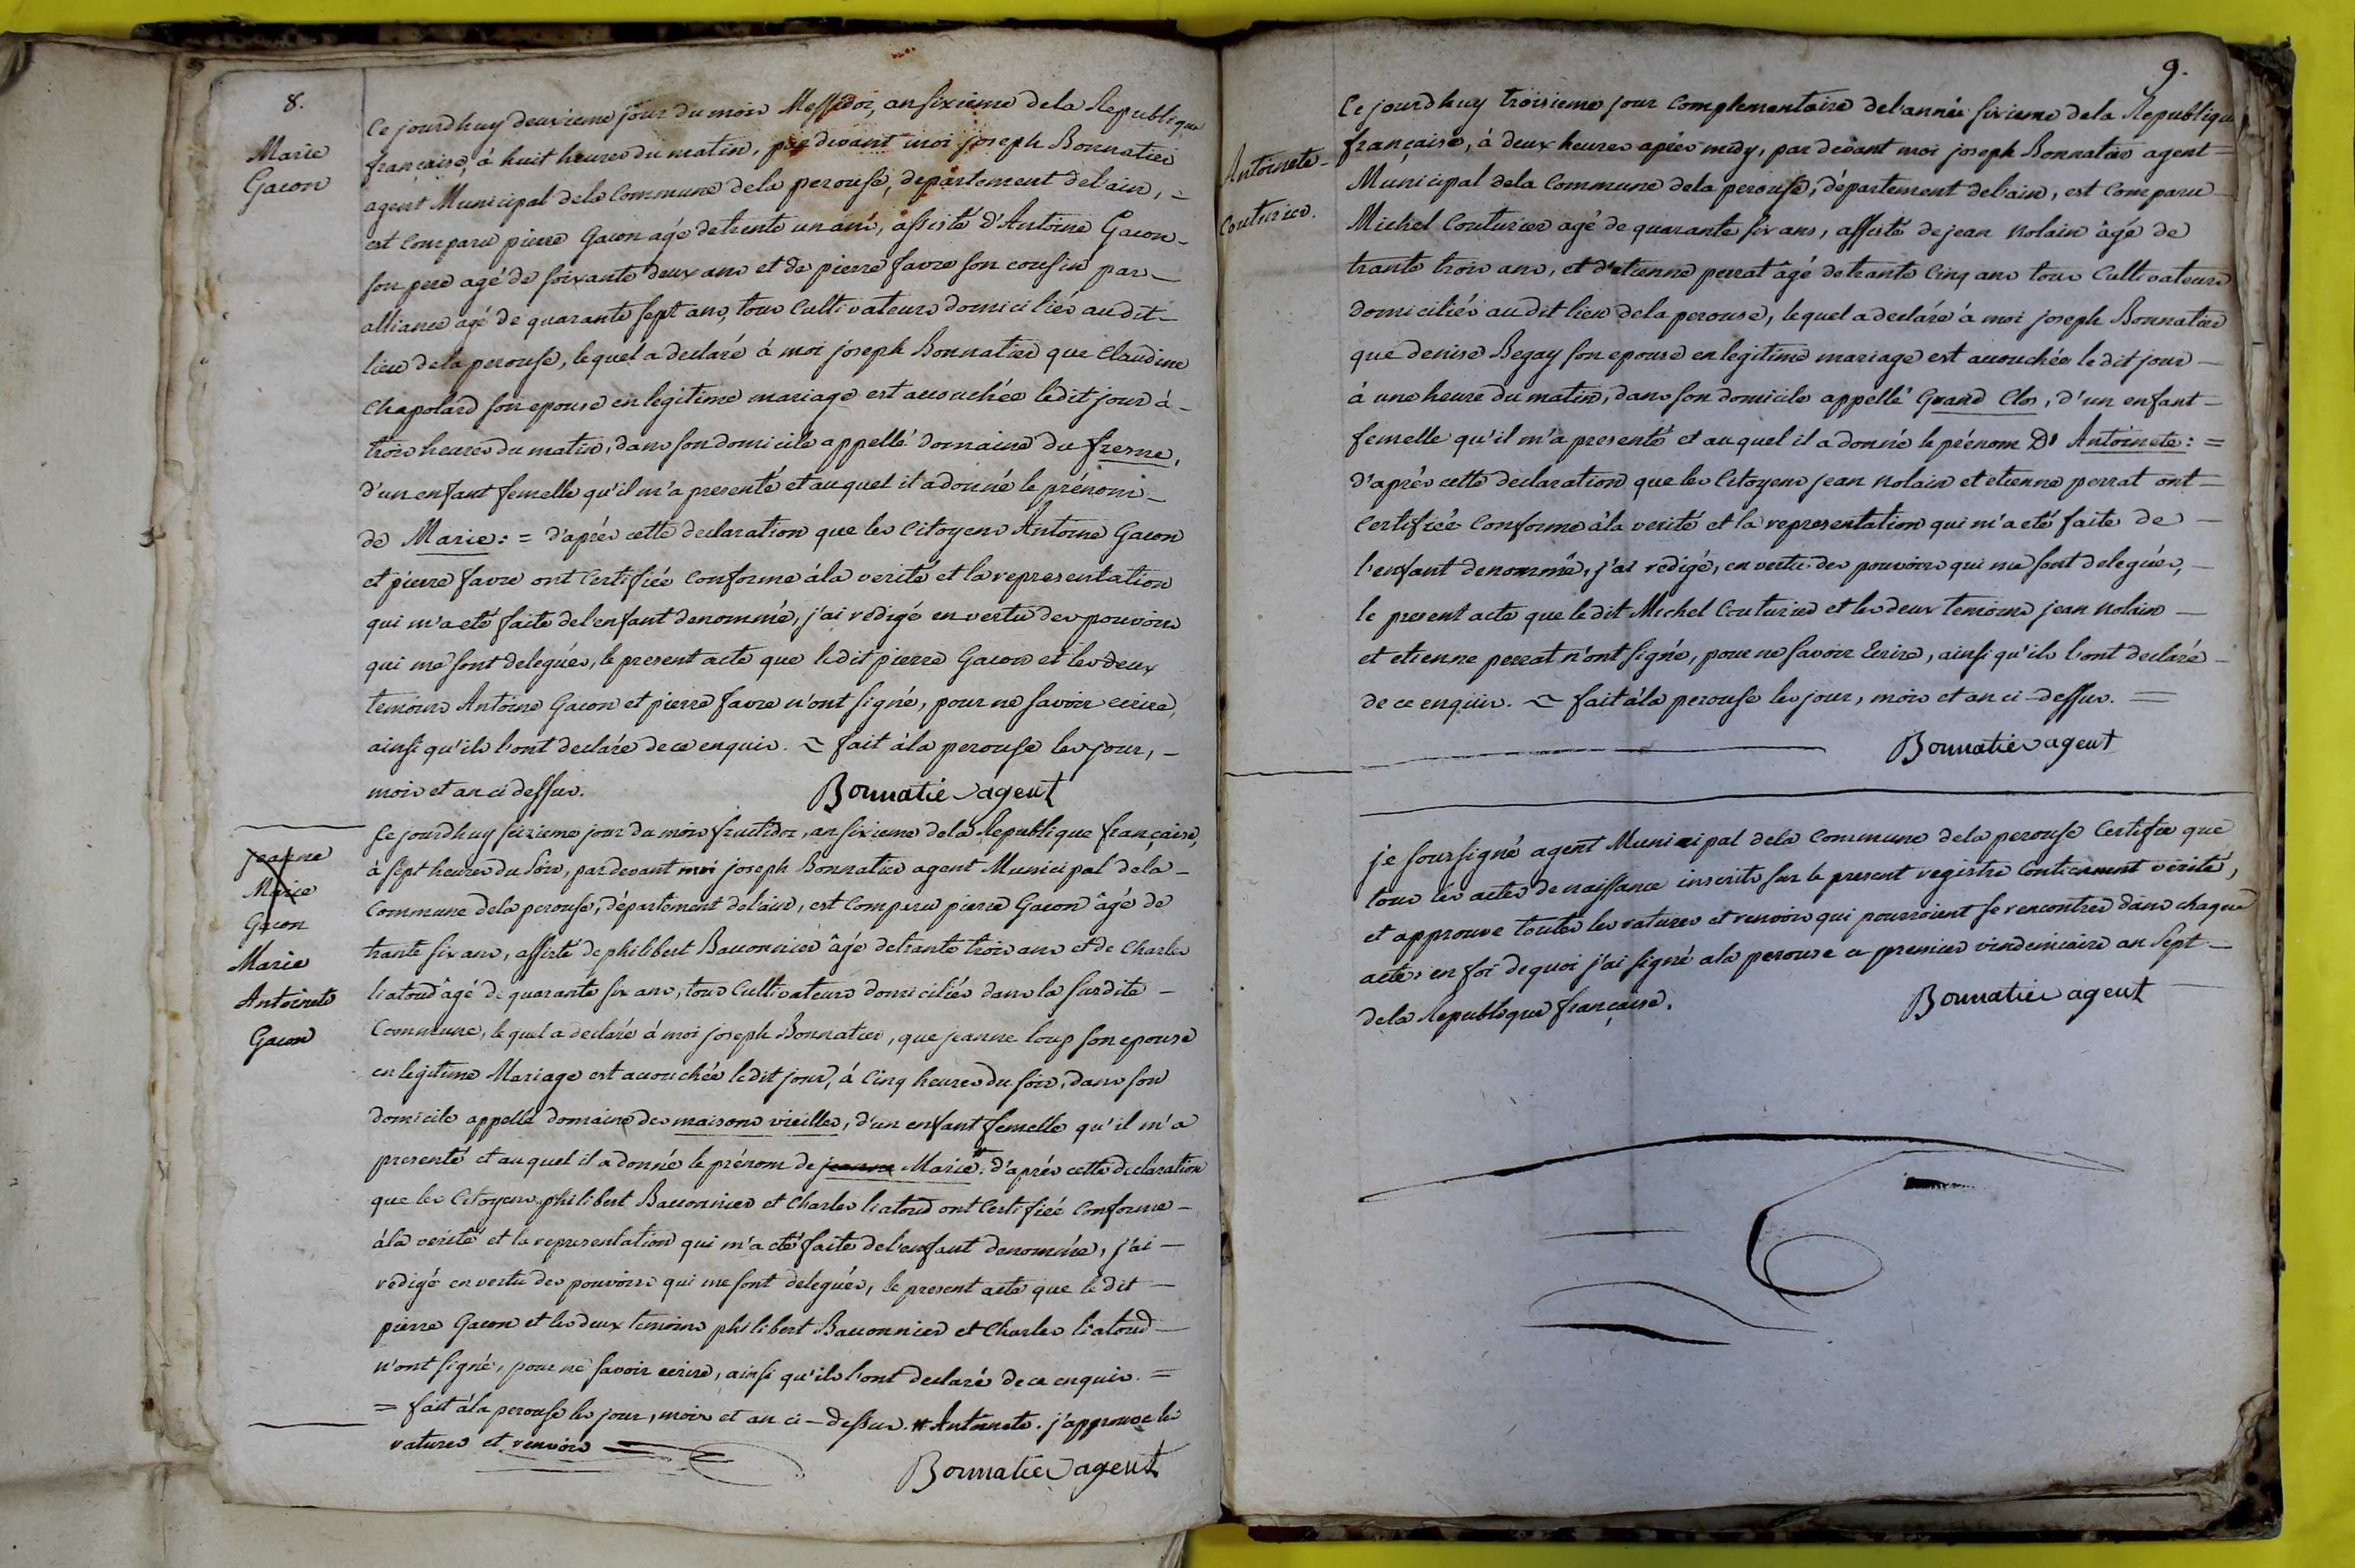 8.
Marie
Gacon
Ce jourdhuy deuxieme jour du mois Messidor, an sixieme dela Republique
française, à huit heures du matin, par devant moi joseph Bonnatier
agent Municipal dela Commune dela perouse, departement delain, =
est Comparu pierre Gacon agé detrente un ans, assisté d'Antoine Gacon
son pere agé de soixante deux ans et de pierre favre son cousin par
alliance agé de quarante sept ans, tous Cultivateurs domiciliés audit
lieu dela perouse, lequel a declaré à moi joseph Bonnatier que Claudine
Chapolard son epouse en legitime mariage est accouchée ledit jour à
trois heures du matin, dans son domicile appellé domaine du fresne,
d'un enfant femelle qu'il m'a presenté et auquel il a donné le prénom
de Marie: = d'aprés cette declaration que les Citoyens Antoine Gacon
et pierre favre ont Certifiée Conforme àla verité et la representation
qui m'a eté faite del'enfant denommé, j'ai redigé en vertu des pouvoirs
qui me sont delegués, le present acte que ledit pierre Gacon et les deux
temoins Antoine Gacon et pierre favre n'ont signé, pour ne savoir ecrire,
ainsi qu'ils l'ont declaré de ce enquis. ~ fait àla perouse les jour,
mois et an ci dessus. Bonnatier agent
jeanne
Marie
Gacon
Marie
Antoinete
Gacon
Ce jourdhuy seizieme jour du mois fructidor, an sixieme dela Republique française,
à sept heures du soir, par devant moi joseph Bonnatier agent Municipal dela
Commune dela perouse, département delain, est Comparu pierre Gacon âgé de
trante six ans, assisté de philibert Bauonnier âgé detrante trois ans et de Charles
liatoud agé de quarante six ans, tous Cultivateurs domiciliés dans la susdite
Commune, lequel a declaré à moi joseph Bonnatier, que jeanne loup son epouse
en legitime Mariage est accouchée ledit jour, à Cinq heures du soir, dans son
domicile appellé domaine des maisons vieilles, d'un enfant femelle qu'il m'a
presenté et auquel il a donné le prénom de jeanne Marie #: d'aprés cette declaration
que les Citoyens philibert Bauonnier et Charles liatoud ont Certifiée Conforme
àla verité et la representation qui m'a eté faite del'enfant denommée, j'ai
redigé en vertu des pouvoirs qui me sont delegués, le present acte que ledit
pierre Gacon et les deux temoins philibert Bauonnier et Charles liatoud
n'ont signé, pour ne savoir ecrire, ainsi qu'ils l'ont declaré de ce enquis. =
= fait àla perouse les jour, mois et an ci-dessus. # Antoinete. j'approuve les
ratures et renvois
Bonnatier agent
9.
Antoinete
Couturier.
Ce jourdhuy troisieme jour Complementaire del'année sixieme dela Republique
française, à deux heures aprés midy, par devant moi joseph Bonnatier agent
Municipal dela Commune dela perouse, département delain, est Comparu
Michel Couturier agé de quarante six ans, assisté de jean Nolain âgé de
trante trois ans, et d'etienne perrat âgé detrante Cinq ans tous Cultivateurs
domiciliés audit lieu dela perouse, lequel a declaré à moi joseph Bonnatier
que denise Begay son epouse en legitime mariage est accouchée ledit jour
à une heure du matin, dans son domicile appellé Grand Clos, d'un enfant
femelle qu'il m'a presenté et auquel il a donné le prénom D' Antoinete: =
d'aprés cette declaration que les Citoyens jean Nolain et etienne perrat ont
Certifiée Conforme àla verité et la representation qui m'a eté faite de
l'enfant denommé, j'ai redigé, en vertu des pouvoirs qui me sont delegués,
le present acte que ledit Michel Couturier et les deux temoins jean Nolain
et etienne perrat n'ont signé, pour ne savoir Ecrire, ainsi qu'ils l'ont declaré
de ce enquis. ~ fait àla perouse les jour, mois et an ci-dessus. =
Bonnatier agent
je soussigné agent Municipal dela Commune dela perouse Certifie que
tous les actes de naissance inscrits sur le present registre Contiennent vérité,
et approuve toutes les ratures et renvois qui pourroient se rencontrer dans chaque
acte: en foi de quoi j'ai signé ala perouse ce premier vindemiaire an Sept
dela Republique française.
Bonnatier agent